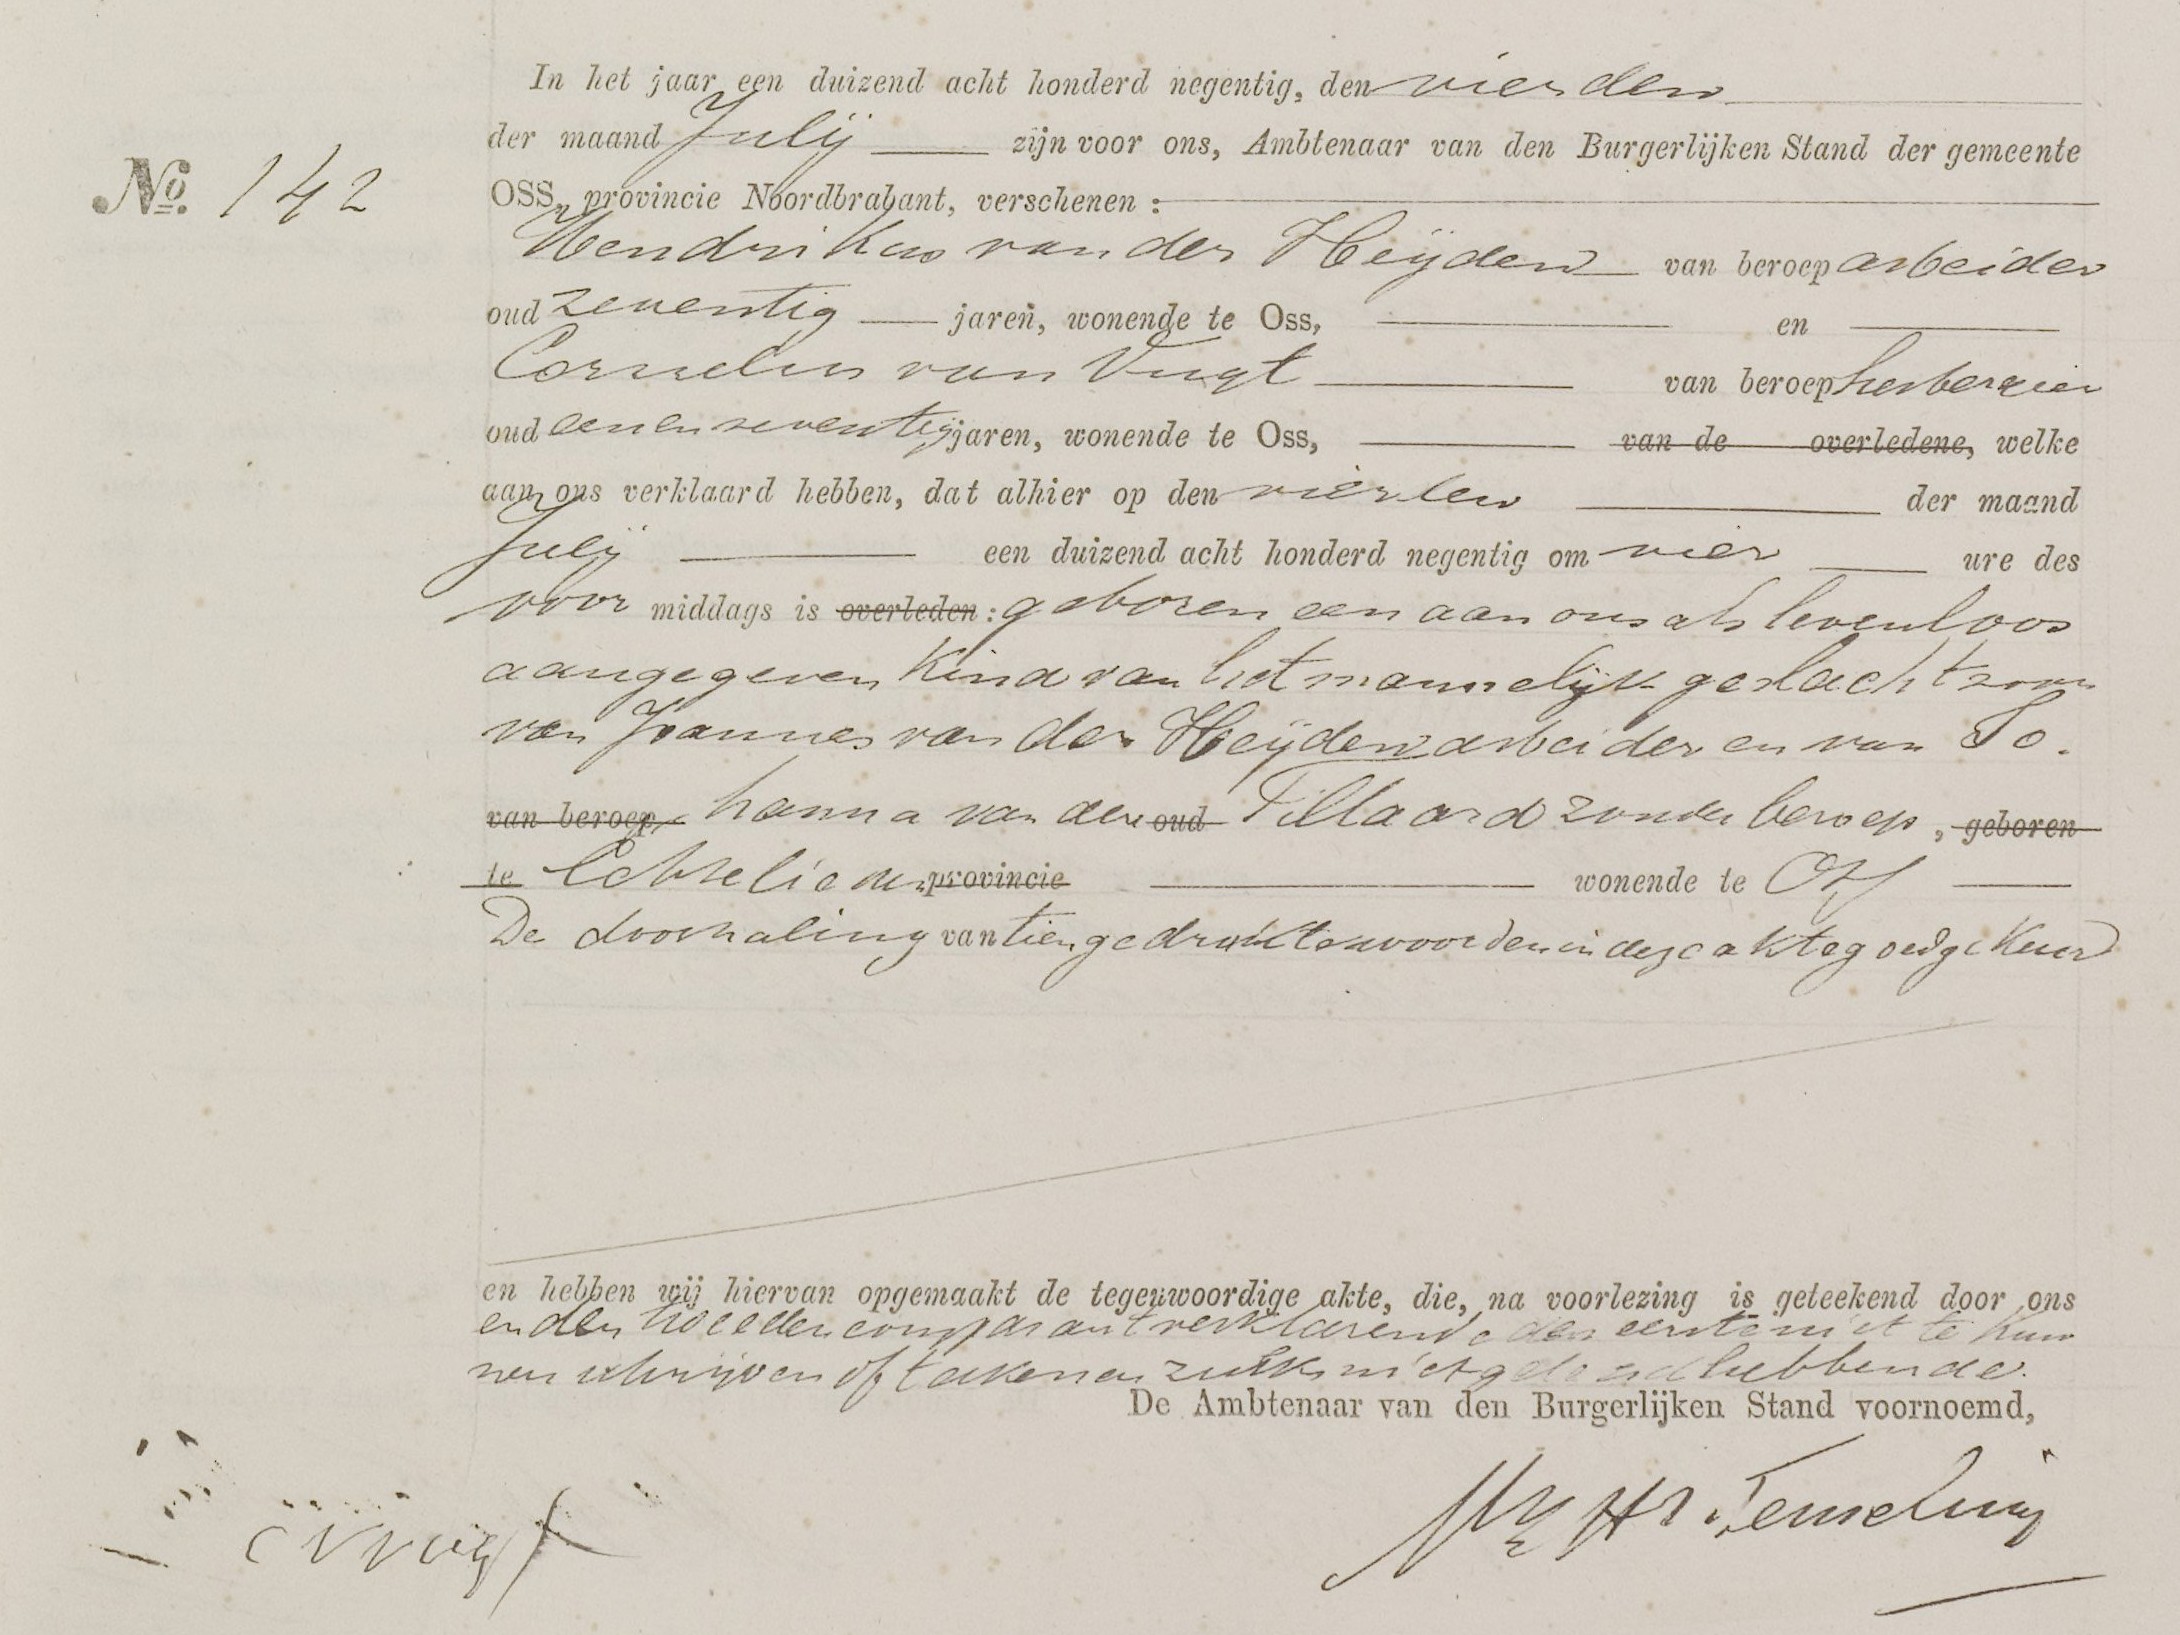 In het jaar een duizend acht honderd negentig, den vierden
der maand Julij zijn voor ons, Ambtenaar van den Burgerlijken Stand der gemeente
No. 142
OSS, provincie Noordbrabant, verschenen :
Hendrikus van der Heijden van beroep arbeider
oud zeventig jaren, wonende te Oss, en
Cornelus van Vugt van beroep herbergier
oud eenenzeventig jaren, wonende te Oss, van de overledene, welke
aan ons verklaard hebben, dat alhier op den vierden der maand
Julij een duizend acht honderd negentig om vier ure des
voor middags is overleden : geboren een aan ons als levenloos
aangegeven Kind van het mannelijk geslacht zoon
van Joannes van der Heijden arbeider en van Jo.
van beroep hanna van den oud Tillaard zonder beroep, geboren
te Echtelieden provincie wonende te Oss
De doorhaling van tien gedrukte woorden in deze akte goedgekeurd
en hebben wij hiervan opgemaakt de tegenwoordige akte, die, na voorlezing is geteekend door ons
en den tweeden comparant verklarende den eerste niet te kun
nen schrijven of teekenen zulks niet geleerd hebbende.
De Ambtenaar van den Burgerlijken Stand voornoemd,
C V Vugt